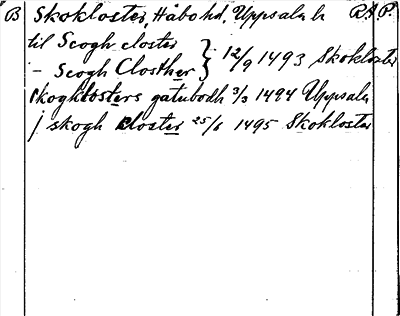 B Skokloster, Håbo hd, Uppsala l. RA P.
til Scogh closter } 12/9 1493 Skokloster
– Scogh Closther
skogklosters gatubodh 3/3 1494 Uppsala
j skogh closter 25/6 1495 Skokloster